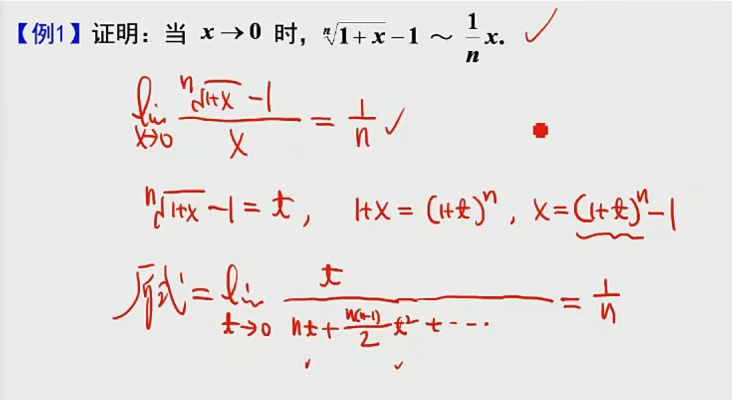 【例1】证明：当 x→0 时，ⁿ√(1+x)-1 ～ 1/n x. ✓
lim x→0 (ⁿ√(1+x) -1)/x = 1/n ✓
ⁿ√(1+x) -1 = t, 1+x = (1+t)ⁿ, x = (1+t)ⁿ-1
原式 = lim t→0 t/(nt + n(n-1)/2 t² + ···) = 1/n